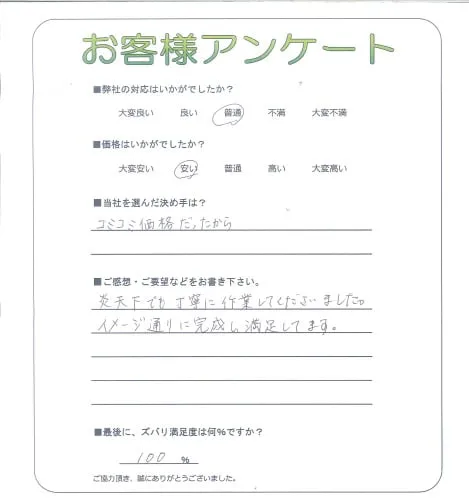 お客様アンケート
■弊社の対応はいかがでしたか？
大変良い 良い 普通 不満 大変不満
■価格はいかがでしたか？
大変安い 安い 普通 高い 大変高い
■当社を選んだ決め手は？
コミコミ価格だったから
■ご感想・ご要望などをお書き下さい。
炎天下でも丁寧に作業してくださいました。
イメージ通りに完成し満足してます。
■最後に、ズバリ満足度は何%ですか？
100 %
ご協力頂き、誠にありがとうございました。